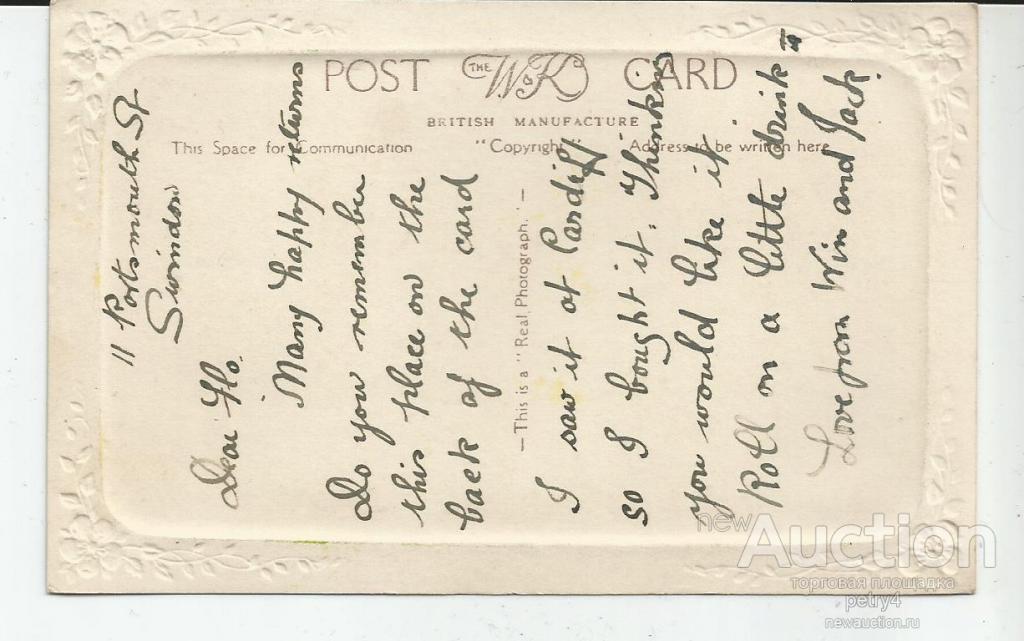 POST THE W&K CARD
BRITISH MANUFACTURE
This Space for Communication "Copyright" Address to be written here
— This is a "Real Photograph." —
11 Portsmouth St
Swindon
Dear Flo.
Many happy returns
Do you remember
this place on the
back of the card
I saw it at Cardiff
so I bought it. Thinking
you would like it
Roll on a little drink
Love from Win and Jack.
newAuction
торговая площадка
petry4
newauction.ru